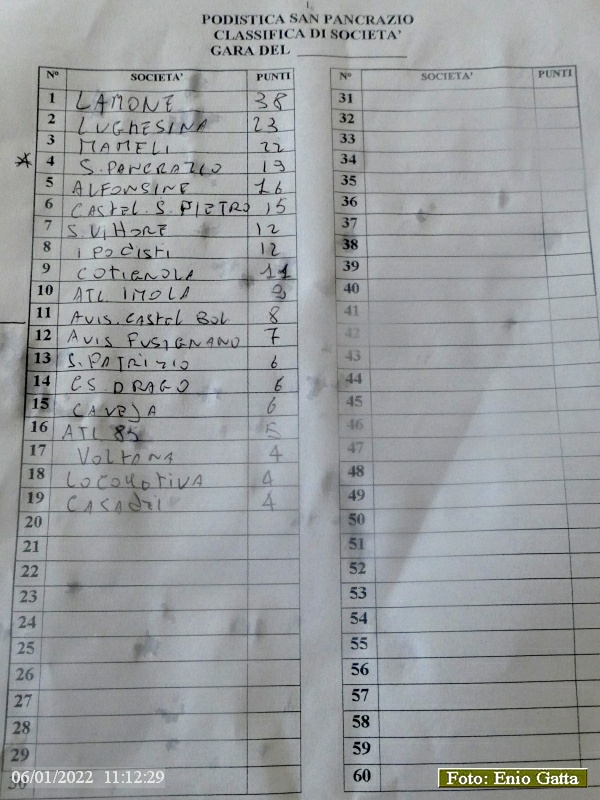 PODISTICA SAN PANCRAZIO
CLASSIFICA DI SOCIETA'
GARA DEL
N° SOCIETA' PUNTI
1 LAMONE 38
2 LUGHESINA 23
3 MAMELI 22
4 S. PANCRAZIO 19
5 ALFONSINE 16
6 CASTEL. S. PIETRO 15
7 S. VITTORE 12
8 I PODISTI 12
9 COTIGNOLA 11
10 ATL IMOLA 9
11 AVIS. CASTEL BOL 8
12 AVIS FUSIGNANO 7
13 S. PATRIZIO 6
14 CS DRAGO 6
15 CAVEJA 6
16 ATL 85 5
17 VOLTANA 4
18 LOCOMOTIVA 4
19 4
20
21
22
23
24
25
26
27
28
29
30
N° SOCIETA' PUNTI
31
32
33
34
35
36
37
38
39
40
41
42
43
44
45
46
47
48
49
50
51
52
53
54
55
56
57
58
59
60
06/01/2022 11:12:29
Foto: Enio Gatta